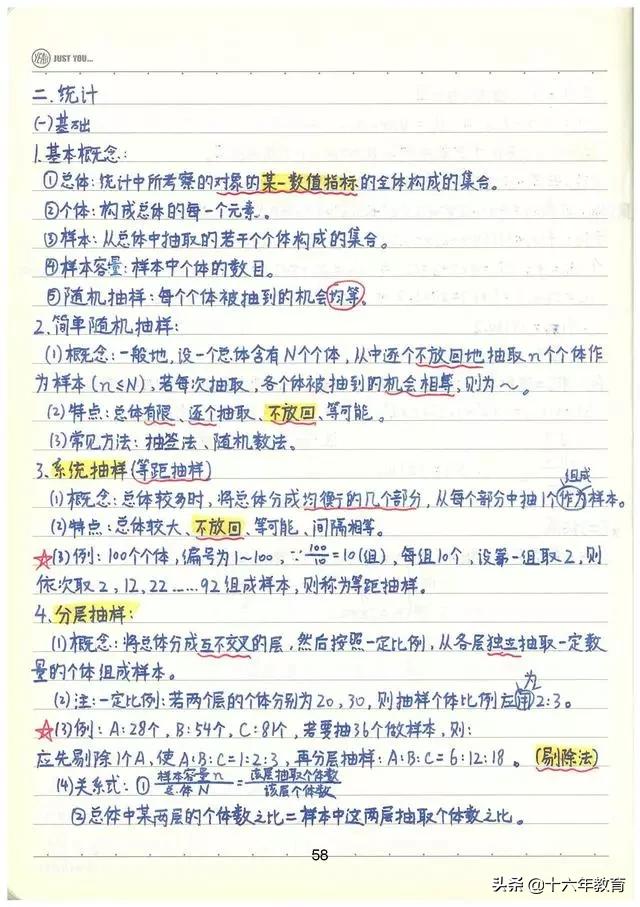 YEAH JUST YOU...
二.统计
(一)基础
1.基本概念:
①总体:统计中所考察的对象的某一数值指标的全体构成的集合。
②个体:构成总体的每一个元素。
③样本:从总体中抽取的若干个个体构成的集合。
④样本容量:样本中个体的数目。
⑤随机抽样:每个个体被抽到的机会均等。
2.简单随机抽样:
(1)概念:一般地,设一个总体含有N个个体,从中逐个不放回地抽取n个个体作
为样本(n≤N),若每次抽取,各个体被抽到的机会相等,则为~。
(2)特点:总体有限、逐个抽取、不放回、等可能。
(3)常见方法:抽签法、随机数法。
3.系统抽样(等距抽样)
(1)概念:总体较多时,将总体分成均衡的几个部分,从每个部分中抽1个作为样本。
组成
(2)特点:总体较大、不放回、等可能、间隔相等。
☆(3)例:100个个体,编号为1~100,∵100/10=10(组),每组10个,设第一组取2,则
依次取2,12,22……92组成样本,则称为等距抽样。
4.分层抽样:
(1)概念:将总体分成互不交叉的层,然后按照一定比例,从各层独立抽取一定数
量的个体组成样本。
(2)注:一定比例:若两个层的个体分别为20,30,则抽样个体比例应用2:3。
为
☆(3)例:A:28个,B:54个,C:81个,若要抽36个做样本,则:
应先剔除1个A,使A:B:C=1:2:3,再分层抽样:A:B:C=6:12:18。(剔除法)
(4)关系式:①样本容量n/总体N=该层抽取个体数/该层个体数
②总体中某两层的个体数之比=样本中这两层抽取个体数之比。
58
头条@十六年教育